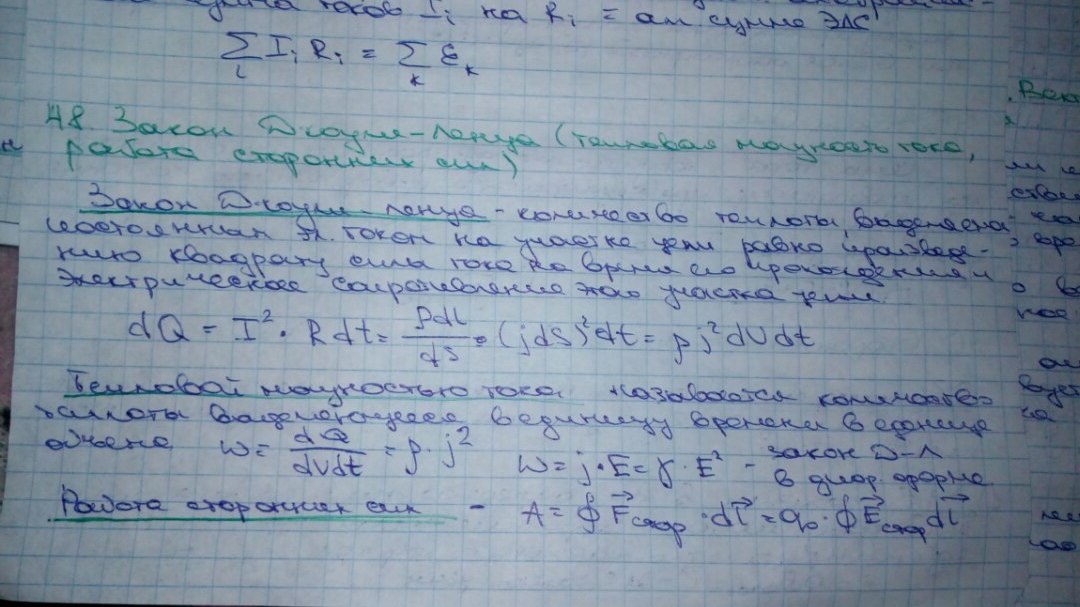 сумма токов Iᵢ на Rᵢ = ам сумме ЭДС
∑ᵢ Iᵢ Rᵢ = ∑ₖ Ɛₖ
48. Закон Джоуля-Ленца (тепловая мощность тока,
работа сторонних сил)
Закон Джоуля-Ленца - количество теплоты, выделяема
постоянная эл. током на участке цепи равно произведе-
нию квадрату силы тока на время его прохождения и
электрическое сопротивление этого участка цепи.
dQ = I² · R dt = ρdl/dS · (jdS)² dt = ρj² dV dt
Тепловой мощностью тока называется количество
теплоты выделяющееся в единицу времени в единице
объема w = dQ/dVdt = ρ · j² w = j · E = γ · E² - закон Д-Л
в диф. форме
Работа сторонних сил - A = ∮ F⃗стор · dl⃗ = q₀ · ∮ E⃗стор dl⃗